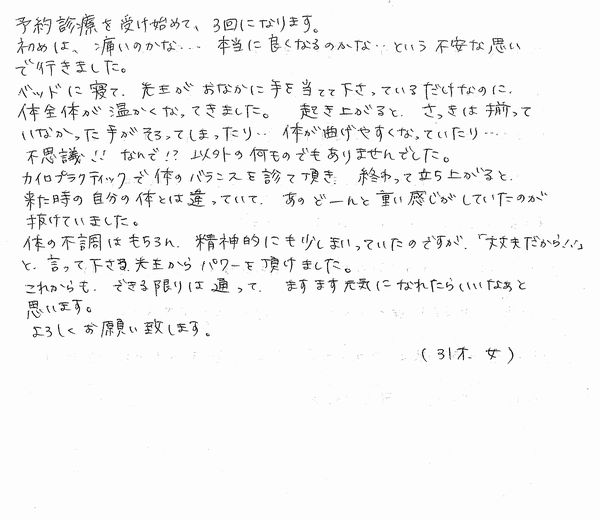 予約診療を受け始めて、3回になります。
初めは、痛いのかな… 本当に良くなるのかな…という不安な思い
で行きました。
ベッドに寝て、先生がおなかに手を当てて下さっているだけなのに、
体全体が温かくなってきました。 起き上がると、さっきは揃って
いなかった手がそろってしまったり… 体が曲げやすくなっていたり…
不思議!! なんで!? 以外の何ものでもありませんでした。
カイロプラクティックで体のバランスを診て頂き、終わって立ち上がると、
来た時の自分の体とは違っていて、あのどーんと重い感じがしていたのが
抜けていました。
体の不調はもちろん、精神的にも少しまいっていたのですが、「大丈夫だから!!」
と、言って下さる先生からパワーを頂けました。
これからも、できる限りは通って、ますます元気になれたらいいなぁと
思います。
よろしくお願い致します。
(31才 女)